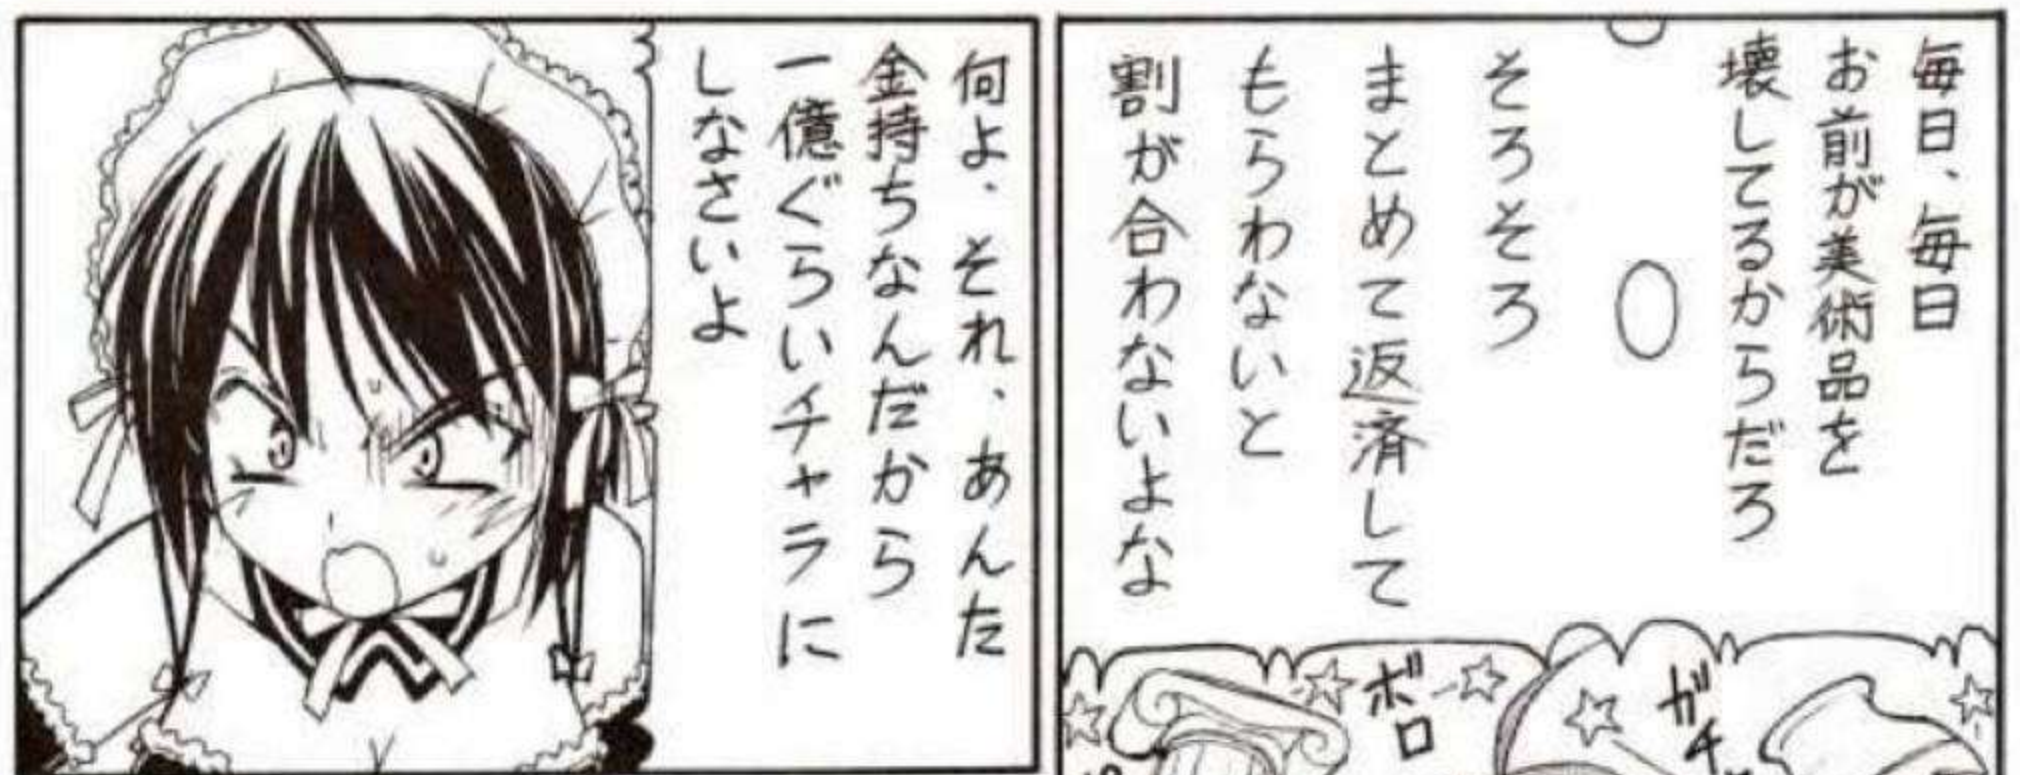 毎日、毎日
お前が美術品を
壊してるからだろ
そろそろ
まとめて返済して
もらわないと
割が合わないよな
ボロ
ガチ
何よ、それ、あんた
金持ちなんだから
一億ぐらいチャラに
しなさいよ